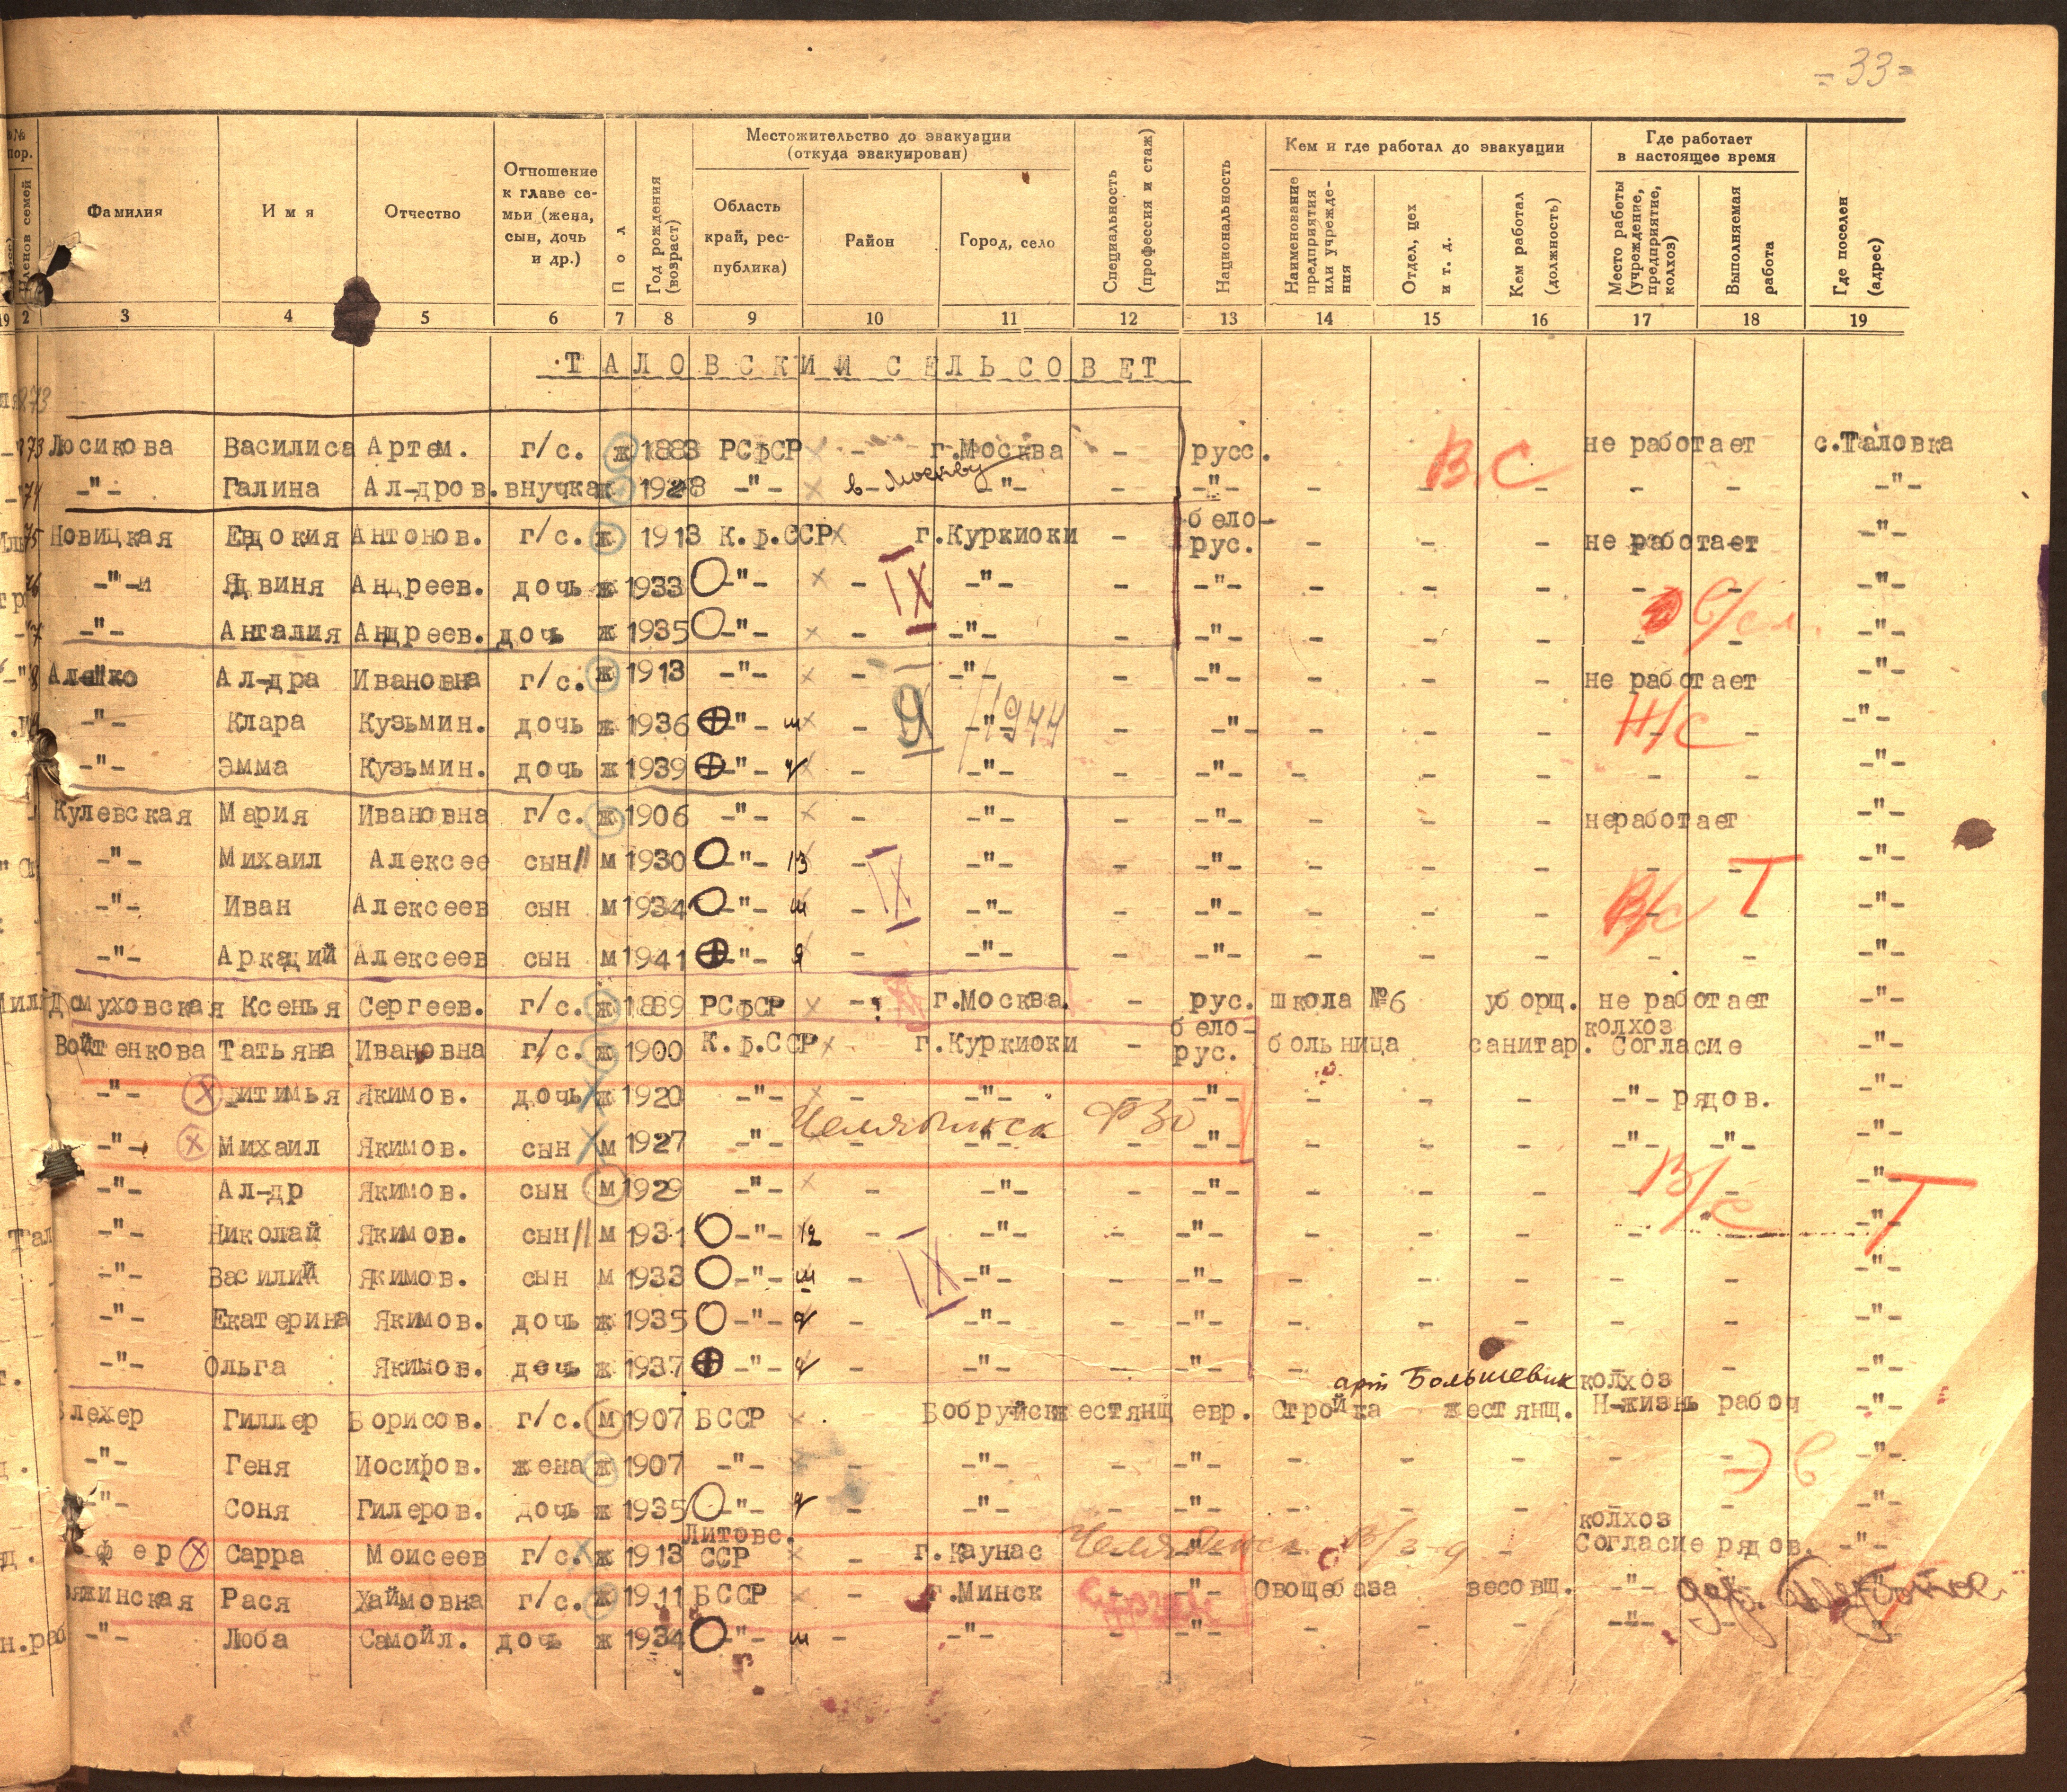 - 33 -
№ пор. Членов семей Фамилия Имя Отчество Отношение к главе семьи (жена, сын, дочь и др.) Пол Год рождения (возраст) Местожительство до эвакуации (откуда эвакуирован) Область край, республика) Район Город, село Специальность (профессия и стаж) Национальность Кем и где работал до эвакуации Наименование предприятия или учреждения Отдел, цех и т. д. Кем работал (должность) Где работает в настоящее время Место работы (учреждение, предприятие, колхоз) Выполняемая работа Где поселен (адрес)
19 2 3 4 5 6 7 8 9 10 11 12 13 14 15 16 17 18 19
ТАЛОВСКИЙ СЕЛЬСОВЕТ
873
73 Лосикова Василиса Артем. г/с. ж 1883 РСФСР - г.Москва - русс. В.С не работает с.Таловка
74 -"- Галина Ал-дров. внучка ж 1928 -"- в Москву -"- - -"- - - - - - -"-
75 Новицкая Евдокия Антонов. г/с. ж 1913 К.ф.ССР г.Куркиоки - бело-рус. - - - не работает -"-
76 -"- Ядвиня Андреев. дочь ж 1933 -"- - IX -"- - -"- - - - - - -"-
77 -"- Анталия Андреев. дочь ж 1935 -"- - -"- - -"- - - - - - -"-
78 Алейко Ал-дра Ивановна г/с. ж 1913 -"- - -"- - -"- - - - не работает -"-
-"- Клара Кузьмин. дочь ж 1936 -"- ш - 9 -"- 1944 - -"- - - - Н/С - - -"-
-"- Эмма Кузьмин. дочь ж 1939 -"- - -"- - -"- - - - - - -"-
Кулевская Мария Ивановна г/с. ж 1906 -"- - -"- - -"- - - - неработает -"-
-"- Михаил Алексее сын м 1930 -"- 13 - IX -"- - -"- - - - - - Т -"-
-"- Иван Алексеев сын м 1934 -"- ш - -"- - -"- - - - В/С - -"-
-"- Аркадий Алексеев сын м 1941 -"- я - -"- - -"- - - - - - -"-
Домуховская Ксенья Сергеев. г/с. ж 1889 РСФСР - г.Москва. - рус. школа №6 уборщ. не работает -"-
Войтенкова Татьяна Ивановна г/с. ж 1900 К.ф.ССР г.Куркиоки - бело-рус. больница санитар. колхоз Согласие -"-
-"- Фитимья Якимов. дочь ж 1920 -"- - -"- - -"- - - - -"- рядов. -"-
-"- Михаил Якимов. сын м 1927 -"- Челябинск ФЗО -"- - -"- - - - -"- -"- -"-
-"- Ал-др Якимов. сын м 1929 -"- - -"- - -"- - - - В/С - -"- Т
-"- Николай Якимов. сын м 1931 -"- 12 - -"- - -"- - - - - - -"-
-"- Василий Якимов. сын м 1933 -"- ш - IX -"- - -"- - - - - - -"-
-"- Екатерина Якимов. дочь ж 1935 -"- - -"- - -"- - - - - - -"-
-"- Ольга Якимов. дочь ж 1937 -"- - -"- - -"- - - -"-
арт Большевик
лехер Гиллер Борисов. г/с. м 1907 БССР Бобруйск жестянщ евр. Стройка жестянщ. колхоз Н-жизнь рабоч -"-
-"- Геня Иосифов. жена ж 1907 -"- - -"- - -"- - - - - - -"-
-"- Соня Гилеров. дочь ж 1935 -"- - -"- - -"- - - - - -"-
фер Сарра Моисеев г/с. ж 1913 Литовс. ССР - г.Каунас Челябинск -"- - колхоз Согласие рядов. -"-
яжинская Рася Хаймовна г/с. ж 1911 БССР - г.Минск - -"- Овощебаза весовщ. -"-
-"- Люба Самойл. дочь ж 1934 -"- ш - -"- - -"- - - - -"- -